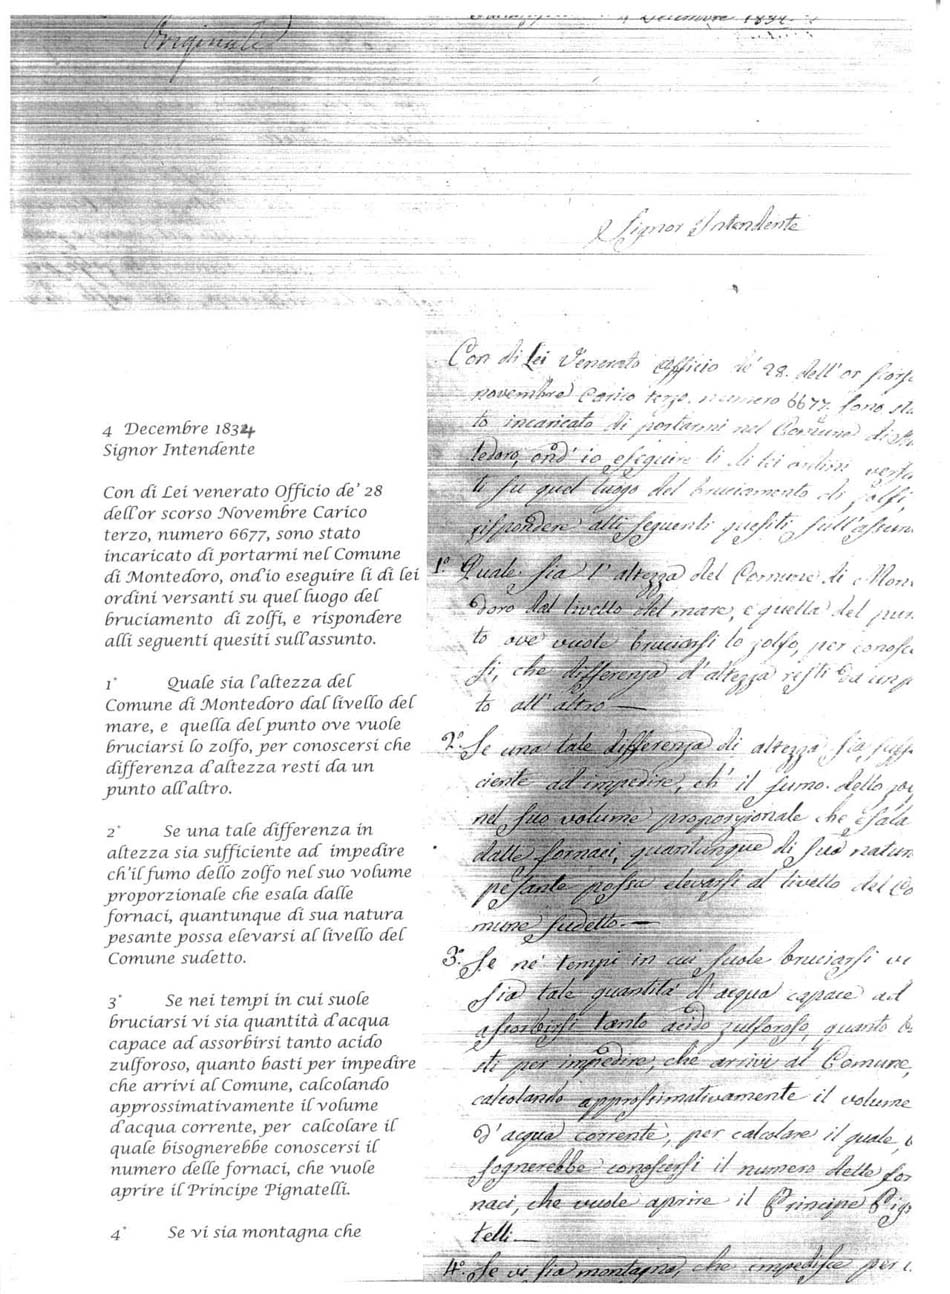 Originale
4 Decembre 1832
Signor Intendente
4 Decembre 1834
Signor Intendente
Con di Lei venerato Officio de' 28
dell'or scorso Novembre Carico
terzo, numero 6677, sono stato
incaricato di portarmi nel Comune
di Montedoro, ond'io eseguire li di lei
ordini versanti su quel luogo del
bruciamento di zolfi, e rispondere
alli seguenti quesiti sull'assunto.
1° Quale sia l'altezza del
Comune di Montedoro dal livello del
mare, e quella del punto ove vuole
bruciarsi lo zolfo, per conoscersi che
differenza d'altezza resti da un
punto all'altro.
2° Se una tale differenza in
altezza sia sufficiente ad impedire
ch'il fumo dello zolfo nel suo volume
proporzionale che esala dalle
fornaci, quantunque di sua natura
pesante possa elevarsi al livello del
Comune sudetto.
3° Se nei tempi in cui suole
bruciarsi vi sia quantità d'acqua
capace ad assorbirsi tanto acido
zulforoso, quanto basti per impedire
che arrivi al Comune, calcolando
approssimativamente il volume
d'acqua corrente, per calcolare il
quale bisognerebbe conoscersi il
numero delle fornaci, che vuole
aprire il Principe Pignatelli.
4° Se vi sia montagna che
Con di Lei Venerato Officio de' 28. dell'or scorso
novembre Carico terzo, numero 6677. sono sta
to incaricato di portarmi nel Comune di Mon
tedoro, ond'io eseguire li di lei ordini versan
ti su quel luogo del bruciamento di zolfi,
rispondere alli seguenti quesiti sull'assun
1° Quale sia l'altezza del Comune di Mon
doro dal livello del mare, e quella del pun
to ove vuole bruciarsi lo zolfo, per conosce
si, che differenza d'altezza resti da un p
to all'altro —
2° Se una tale differenza di altezza sia suffi
ciente ad impedire, ch'il fumo dello zo
nel suo volume proporzionale che esala
dalle fornaci, quantunque di sua natur
pesante possa elevarsi al livello del Co
mune sudetto. —
3° Se ne' tempi in cui suole bruciarsi vi
sia tale quantità d'acqua capace ad
assorbirsi tanto acido zulforoso, quanto b
sti per impedire, che arrivi al Comune,
calcolando approssimativamente il volume
d'acqua corrente, per calcolare il quale, b
sognerebbe conoscersi il numero delle for
naci, che vuole aprire il Principe Pign
telli —
4° Se vi sia montagna, che impedisce per